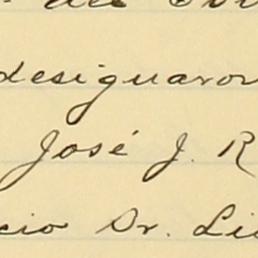 designaron
José J. R
cio Dr. Li